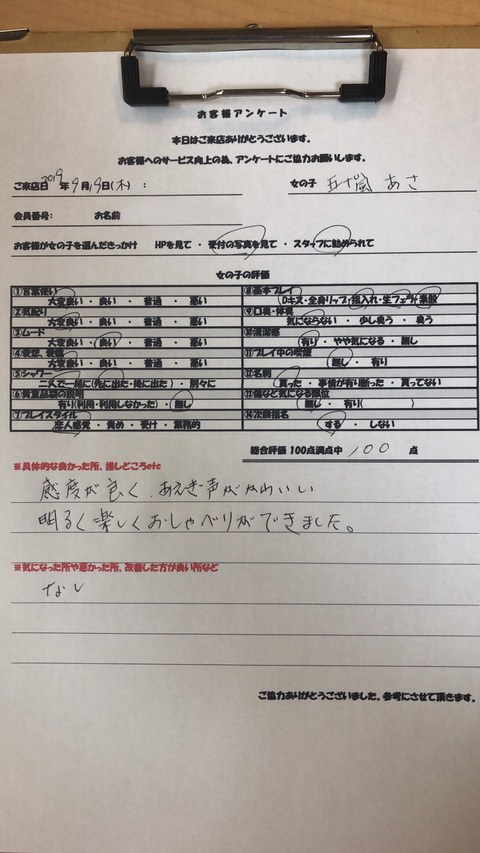 お客様アンケート
本日はご来店ありがとうございます。
お客様へのサービス向上の為、アンケートにご協力お願いします。
ご来店日 2019年9月19日(木) : 女の子 五十嵐 あさ
会員番号: お名前
お客様が女の子を選んだきっかけ HPを見て ・ 受付の写真を見て ・ スタッフに勧められて
女の子の評価
①言葉使い
大変良い ・ 良い ・ 普通 ・ 悪い
②気配り
大変良い ・ 良い ・ 普通 ・ 悪い
③ムード
大変良い ・ 良い ・ 普通 ・ 悪い
④愛想、愛嬌
大変良い ・ 良い ・ 普通 ・ 悪い
⑤シャワー
二人で一緒に(先に出た・後に出た) ・ 別々に
⑥貴重品袋の説明
有り(利用・利用しなかった) ・ 無し
⑦プレイスタイル
恋人感覚 ・ 責め ・ 受け ・ 業務的
⑧基本プレイ
Dキス・全身リップ・指入れ・生フェラ・素股
⑨口臭・体臭
気にならない ・ 少し臭う ・ 臭う
⑩清潔感
有り ・ やや気になる ・ 無し
⑪プレイ中の喫煙
無し ・ 有り
⑫名刺
貰った ・ 事情が有り断った ・ 貰ってない
⑬傷など気になる部位
無し ・ 有り( )
⑭次回指名
する ・ しない
総合評価 100点満点中 100 点
※具体的な良かった所、推しどころetc
感度が良く、あえぎ声がかわいい
明るく楽しくおしゃべりができました。
※気になった所や悪かった所、改善した方が良い所など
なし
ご協力ありがとうございました。参考にさせて頂きます。